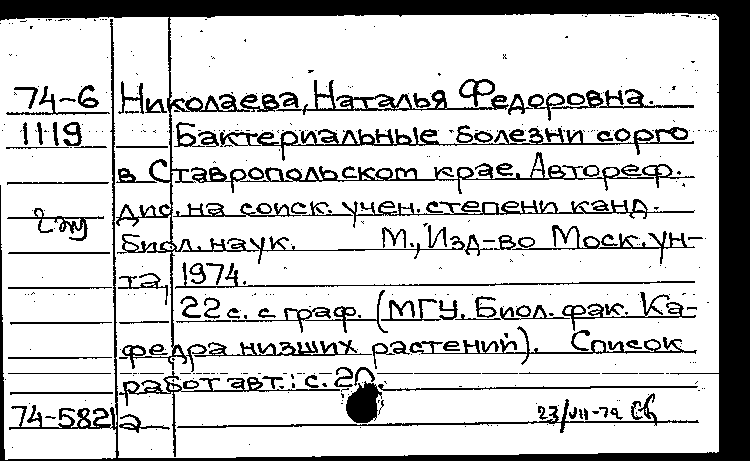 74-6 Николаева, Наталья Федоровна.
1119 Бактериальные болезни сорго
в Ставропольском крае. Автореф.
2 эк дис. на соиск. учен. степени канд.
биол. наук. М., Изд-во Моск. ун-
та, 1974.
22 с. с граф. (МГУ. Биол. фак. Ка-
федра низших растений). Список
работ авт.: с. 20.
74-5821а 23/VII-74